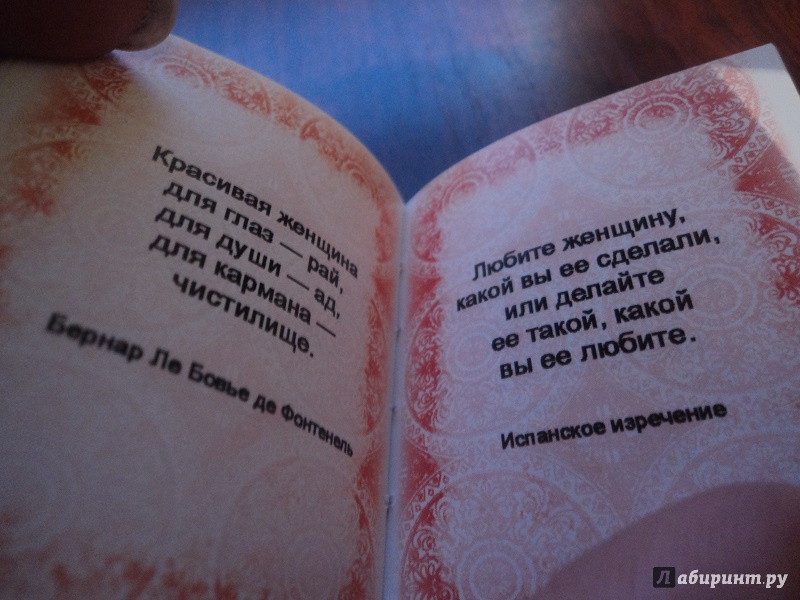 Красивая женщина
для глаз — рай,
для души — ад,
для кармана —
чистилище.
Бернар Ле Бовье де Фонтенель
Любите женщину,
какой вы ее сделали,
или делайте
ее такой, какой
вы ее любите.
Испанское изречение
Лабиринт.ру